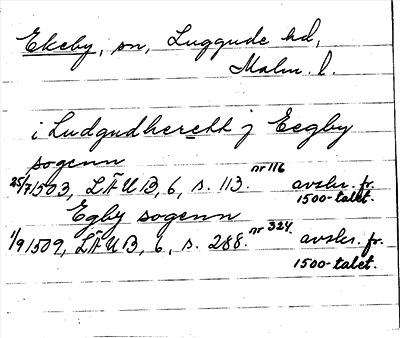 Ekeby, sn, Luggude hd,
Malm. l.
i Ludgudherett j Eegby
sogenn
25/7 1503, LÄUB, 6, s. 113. nr 116 avskr. fr. 1500-talet.
Egby sogenn
1/9 1509, LÄUB, 6, s. 288. nr 324. avskr. fr. 1500-talet.